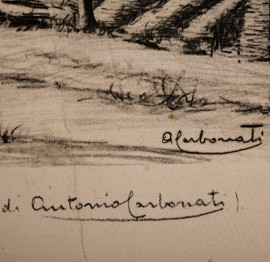 A Carbonati
di Antonio Carbonati )